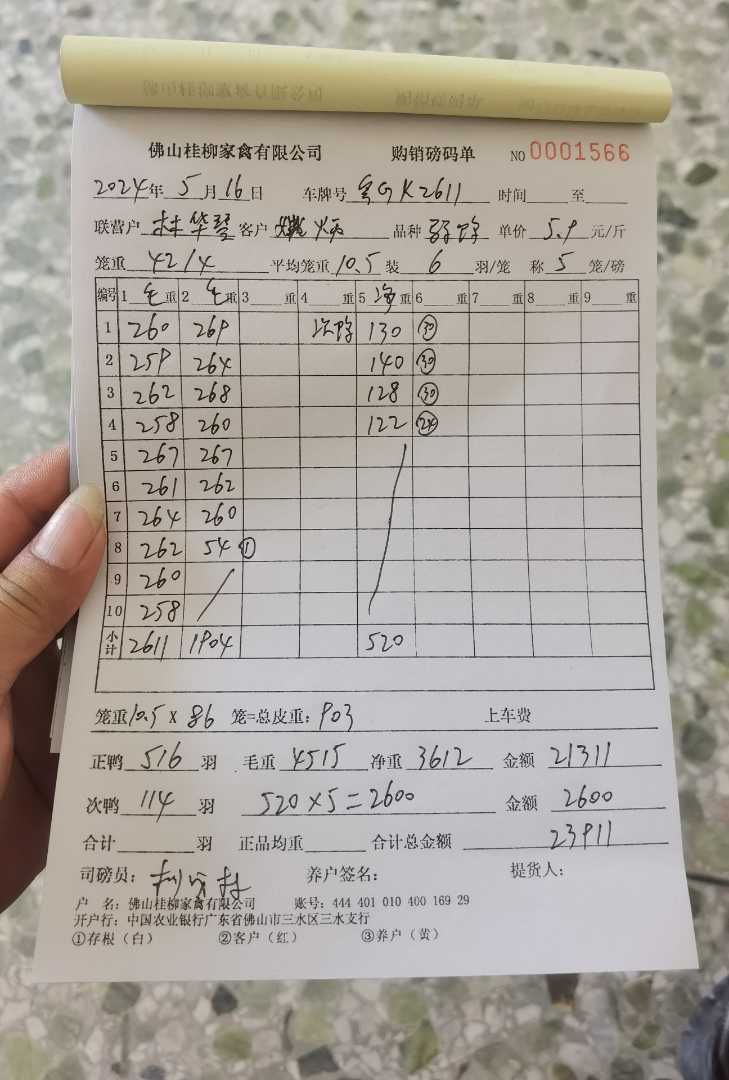 佛山桂柳家禽有限公司 购销磅码单 NO 0001566
2024年 5月 16日 车牌号 粤GK2611 时间 至
联营户 林华琴 客户 燃炳 品种 单价 5.9 元/斤
笼重 42/4 平均笼重 10.5 装 6 羽/笼 称 5 笼/磅
编号 1 毛 重 2 毛 重 3 重 4 重 5 净 重 6 重 7 重 8 重 9 重
1 260 269 次鸭 130 ㉚
2 259 264 140 ㉚
3 262 268 128 ㉚
4 258 260 122 ㉔
5 267 267
6 261 262
7 264 260
8 262 54 ①
9 260
10 258
小计 2611 1904 520
笼重 10.5 X 86 笼=总皮重: 903 上车费
正鸭 516 羽 毛重 4515 净重 3612 金额 21311
次鸭 114 羽 520×5=2600 金额 2600
合计 羽 正品均重 合计总金额 23911
司磅员: 养户签名: 提货人:
户 名: 佛山桂柳家禽有限公司 账号: 444 401 010 400 169 29
开户行: 中国农业银行广东省佛山市三水区三水支行
①存根（白） ②客户（红） ③养户（黄）